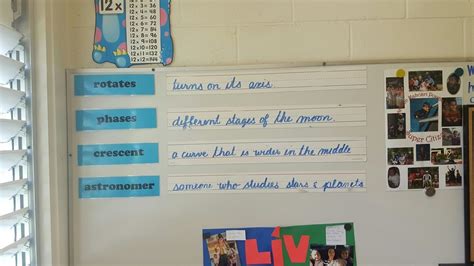 12x
12 x 3 = 36
12 x 4 = 48
12 x 5 = 60
12 x 6 = 72
12 x 7 = 84
12 x 8 = 96
12 x 9 = 108
12 x 10 = 120
12 x 11 = 132
12 x 12 = 144
rotates turns on its axis
phases different stages of the moon
crescent a curve that is wider in the middle
astronomer someone who studies stars & planets
LIV